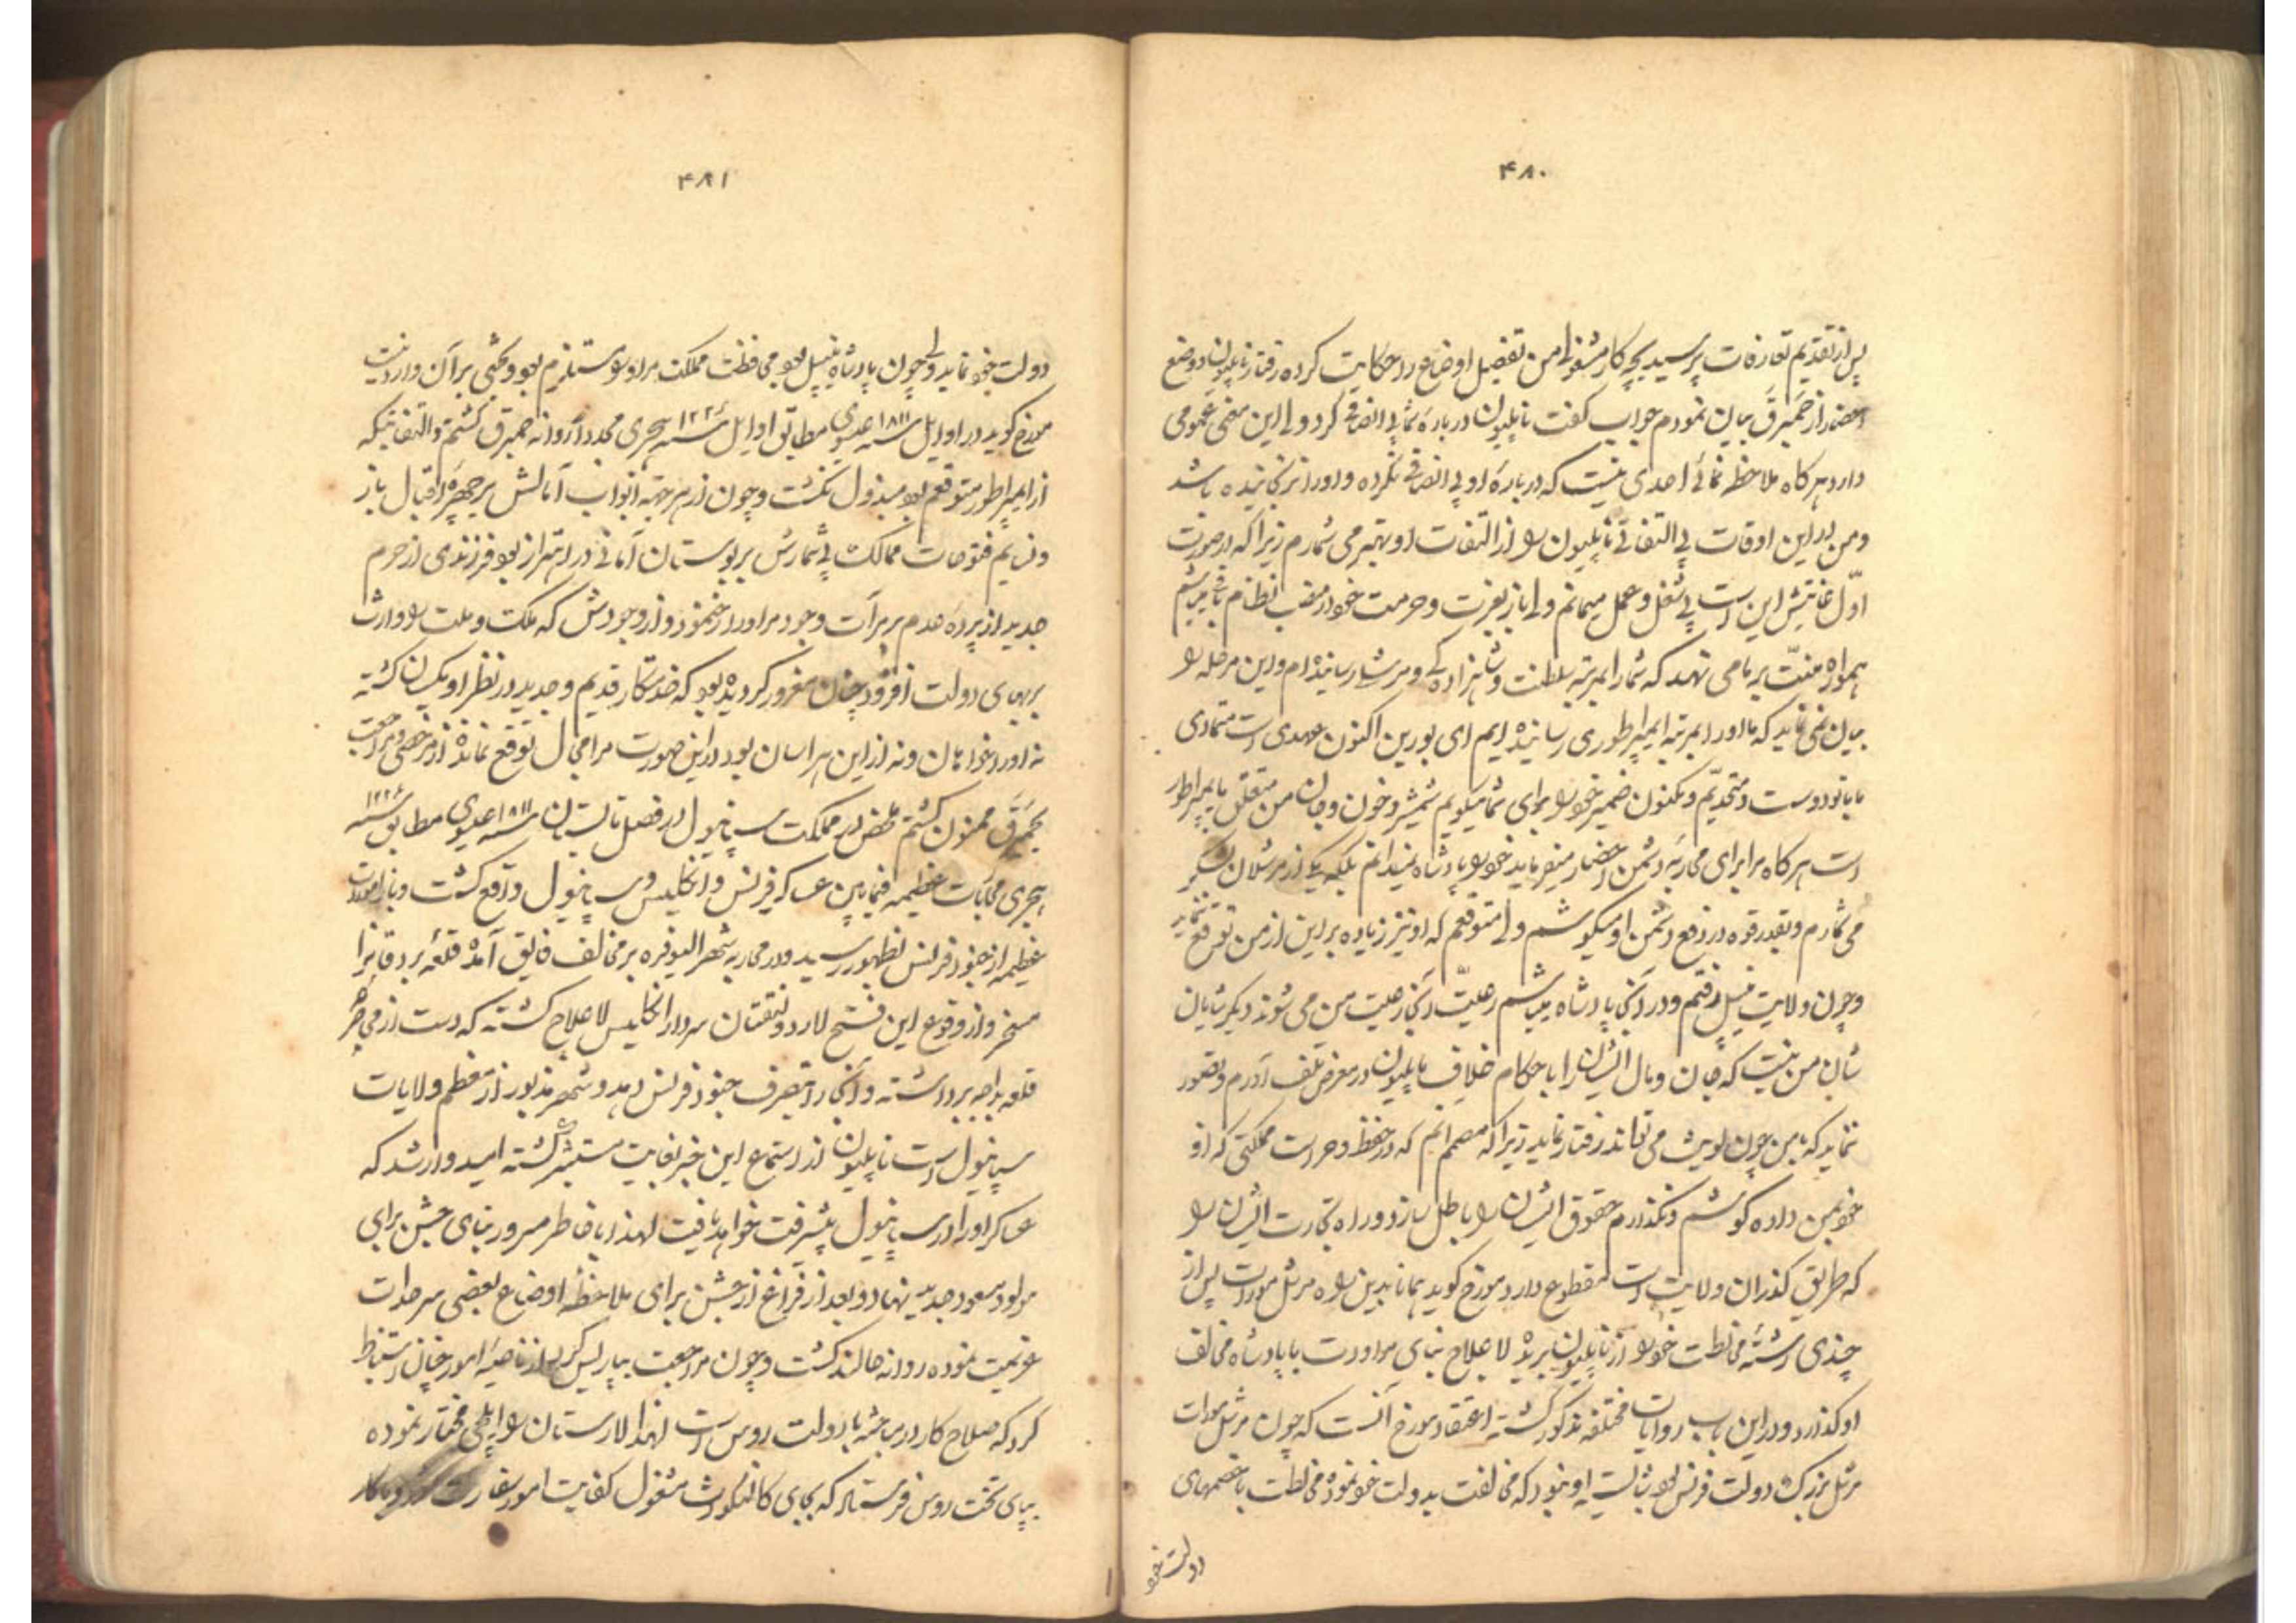 ۴۸۰
پس از تقدیم تعارفات پرسید بچه کار مشغولی من تفصیل اوضاع را حکایت کرده رفتار ناپلیون و وضع
احضار از همبرق بیان نمودم جواب گفت ناپلیون درباره شما بی انصافی کرد ولی این معنی عمومی
دارد هر کاه ملاحظه نمائی احدی نیست که درباره او بی انصافی نکرده و او را نرنجانیده باشد
و من در این اوقات بی التفاتی ناپلیون را از التفات او بهتر می شمارم زیرا که در صورت
اول غایتش این است بی شغل و عمل میمانم ولی باز بعزت و حرمت خود در منصب نظام باقی میباشم
همواره منت بر ما می نهد که شما را بمرتبه سلطنت و شاهزاده کی و مرشلی رسانیده ام و این مرحله را
بیان نمی نماید که ما او را بمرتبه ایمپراطوری رسانیده ایم ای بورین اکنون عهدی است متمادی
با تو دوست و متحدیم و مکنون ضمیر خود را برای شما میگویم شمشیر و خون و جان من متعلق بایمپراطور
است هر کاه مرا برای محاربه دشمن احضار میفرماید خود را پادشاه نمیدانم بلکه یکی از مرشلان لشکر
می شمارم و بقدر قوه در دفع دشمن او میکوشم ولی متوقعم که او نیز زیاده بر این از من توقع ننماید
و چون ولایت نیپل رفتم و در آنجا پادشاه میباشم رعیت آنجا رعیت من می شوند دیگر شایان
شان من نیست که جان و مال ایشان را با حکام خلاف ناپلیون در معرض تلف آورم و تصور
نماید که با من چون لویث می تواند رفتار نماید زیرا که مصمم انم که در حفظ و حراست مملکتی که او
خود بمن داده کوشم و نگذارم حقوق ایشان را باطل سازد و راه تجارت ایشان را
که طریق گذران ولایت است مقطوع دارد مورخ گوید همانا بدین راه مرشل مورات پس از
چندی رشته مخالطت خود را از ناپلیون بریده لاعلاج بنای مراودت با پادشاه مخالف
او گذارد و در این باب روایات مختلفه مذکور گشته اعتقاد مورخ آنست که چون مرشل مورات
مرشل بزرگ دولت فرنس بود شایسته او نبود که مخالفت بدولت خود نموده مخالطت با خصمهای
دولت خود
۴۸۱
دولت خود نماید ولی چون پادشاه نیپل بود محافظت مملکت مر او را مستلزم بود و بحثی بر آن وارد نیست
مورخ گوید در اوایل سنه ۱۸۱۱ عیسوی مطابق اوایل سنه ۱۲۲۶ هجری مجددا روانه همبرق گشتم و التفاتیکه
از ایمپراطور متوقعم بود مبذول نگشت و چون از هر جهة ابواب آمالش بر چهره اقبال باز
و نسایم فتوحات ممالک بی شمارش بر بوستان آمانی در اهتزاز بود فرزندی از حرم
جدید از پرده عدم بر مرآت وجود مر او را رخ نمود و از وجودش که ملکت و ملت را وارث
بر بهای دولت افزود چنان مغرور کردیده بود که خدمتکار قدیم و جدید در نظر او یکسان گشته
نه او را خواهان و نه از این هراسان بود در این صورت مرا مجال توقع نمانده از مرخصی و مراجعت
بهمبرق ممنون گشتم ملخص در مملکت سپانیول در فصل تابستان سنه ۱۸۱۱ عیسوی مطابق سنه ۱۲۲۶
هجری محاربات عظیمه فیما بین عساکر فرنس و انگلیس و سپانیول واقع گشت و باز امورات
عظیمه از جنود فرنس بظهور رسید و در محاربه شهر البوفره بر مخالف فایق آمده قلعه بردقانرا
مسخر و از وقوع این فتح لارد ولنقتان سردار انگلیس لاعلاج گشته که دست از محاصره
قلعه بداجه برداشته و آنجا را بتصرف جنود فرنس دهد و شهر مذبور از معظم ولایات
سپانیول است ناپلیون از استماع این خبر بغایت مستبشر گشته امیدوار شد که
عساکر او را در سپانیول پیشرفت خواهد یافت لهذا با خاطر مسرور بنای جشن برای
مولود مسعود جدید نهاد و بعد از فراغ از جشن برای ملاحظه اوضاع بعضی سرحدات
عزیمت نموده روانه هالند گشت و چون مراجعت بپاریس کرد از ناصیه امور چنان استنباط
کرد که صلاح کار در مباحثه با دولت روس است لهذا لارستان را ایلچی مختار نموده
بپای تخت روس فرستاد که بجای کالنکورت مشغول کفایت امور سفارت